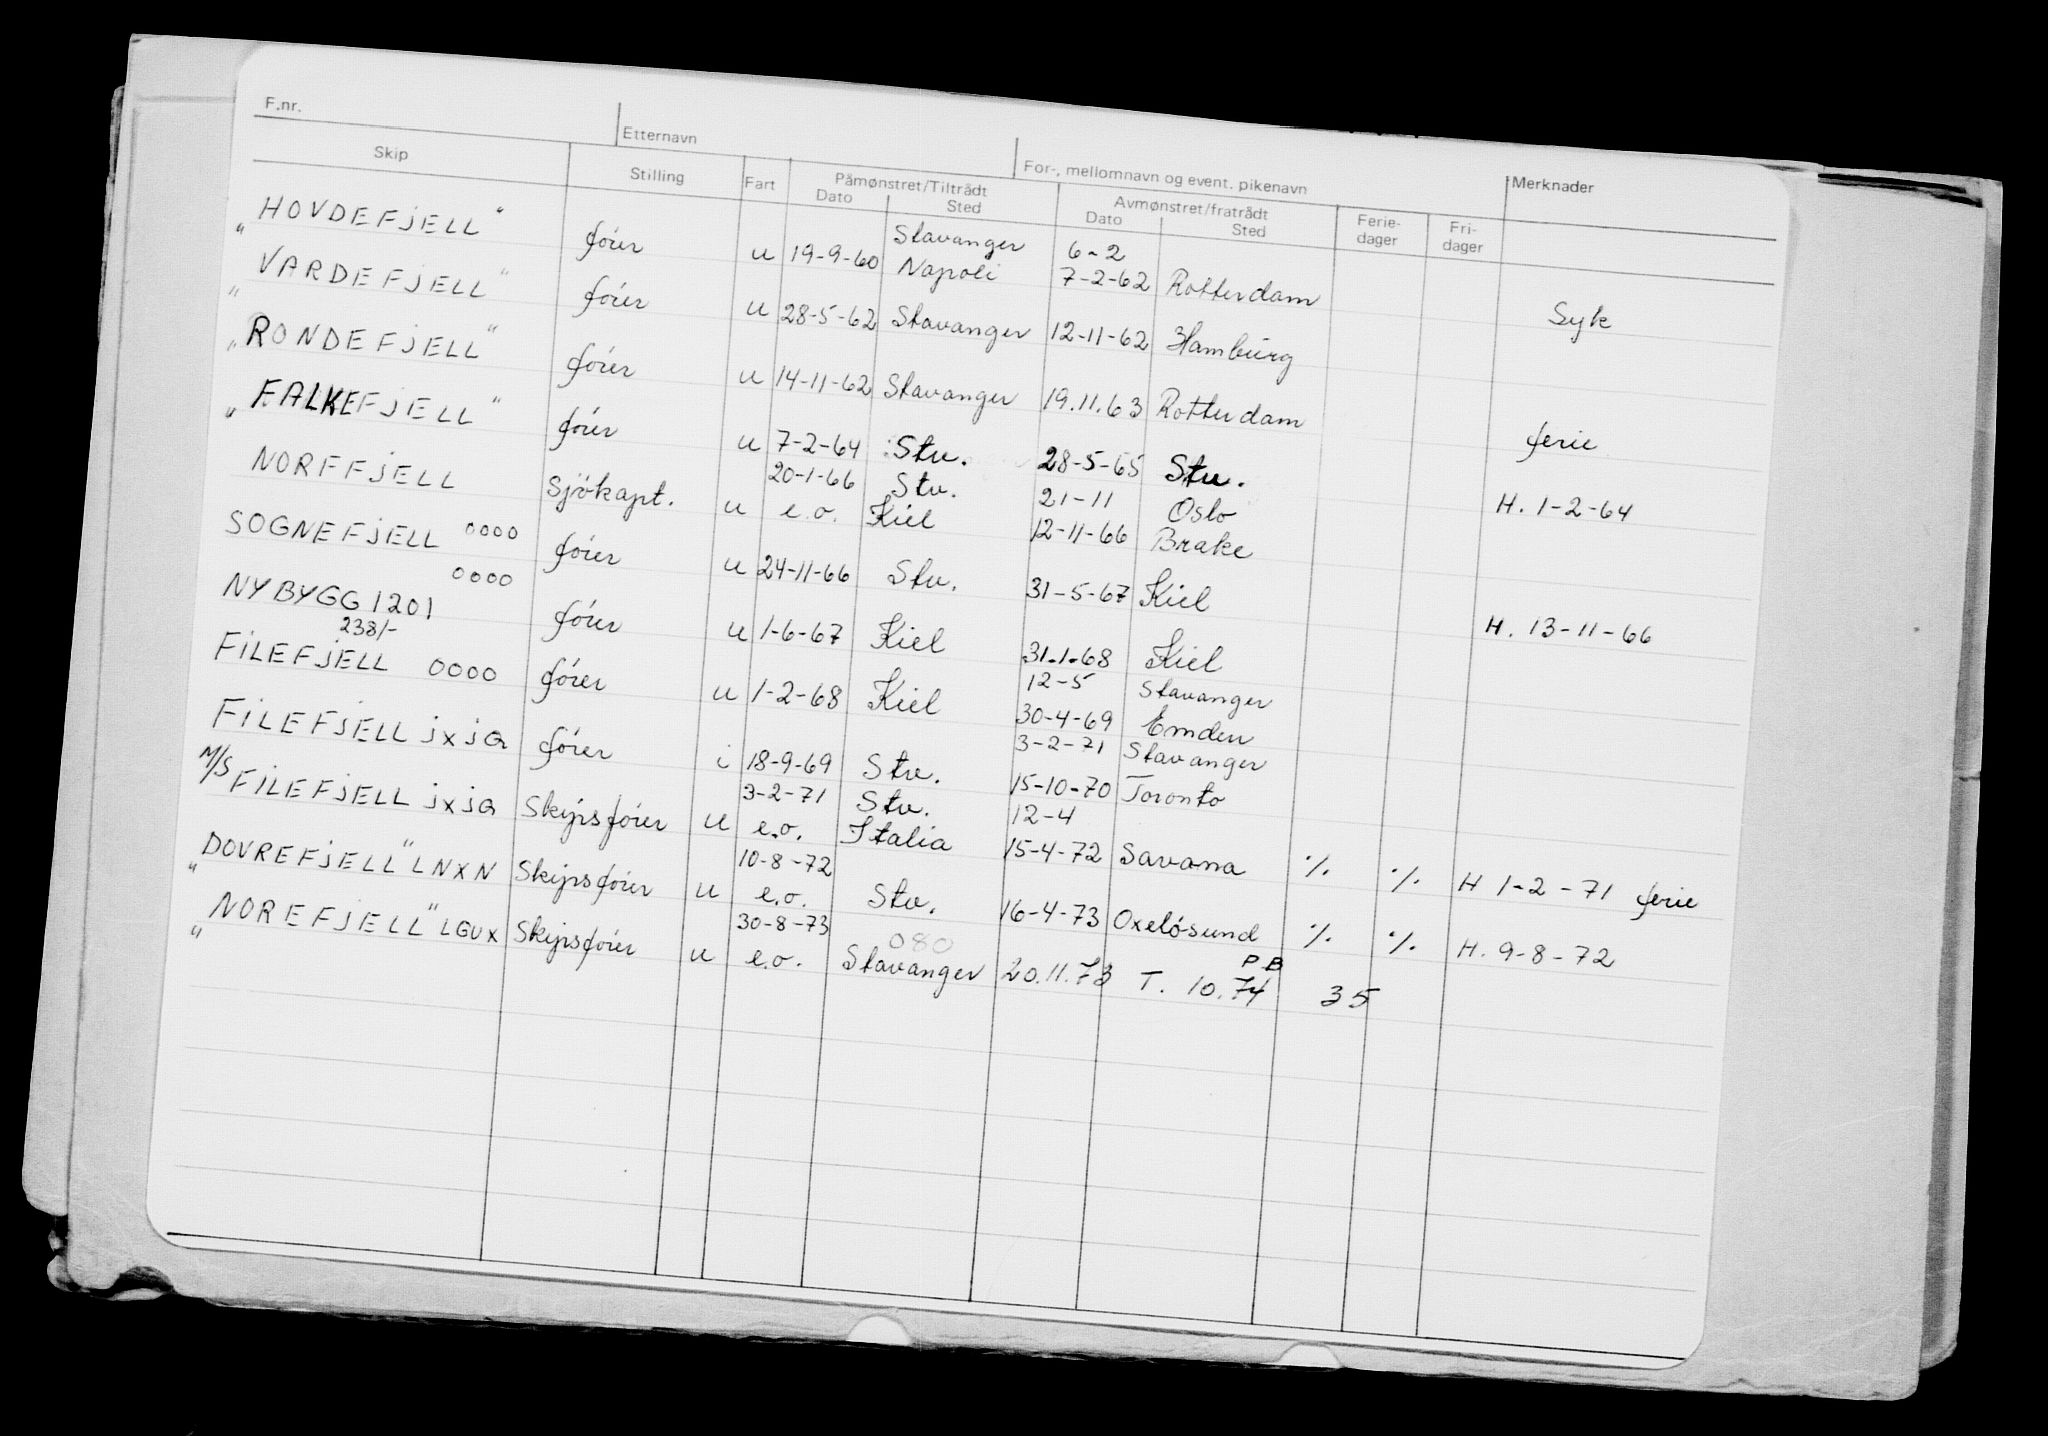 F.nr. Etternavn For-, mellomnavn og event. pikenavn Merknader
Skip Stilling Fart Påmønstret/Tiltrådt Avmønstret/fratrådt Ferie- Fri-
Dato Sted Dato Sted dager dager
Stavanger 6-2
"HOVDEFJELL" fører u 19-9-60 Napoli 7-2-62 Rotterdam Syk
"VARDEFJELL" fører u 28-5-62 Stavanger 12-11-62 Hamburg
"RONDEFJELL" fører u 14-11-62 Stavanger 19.11.63 Rotterdam ferie
"FALKEFJELL" fører u 7-2-64 Stv. 28-5-65 Stv. H. 1-2-64
20-1-66 Stv. 21-11 Oslo
NOREFJELL Sjökapt. u e.o. Kiel 12-11-66 Brake
SOGNEFJELL oooo fører u 24-11-66 Stv. 31-5-67 Kiel H. 13-11-66
oooo
NYBYGG 1201 fører u 1-6-67 Kiel 31.1.68 Kiel
238/- 12-5 Stavanger
FILEFJELL oooo fører u 1-2-68 Kiel 30-4-69 Emden
3-2-71 Stavanger
FILEFJELL JXJQ fører i 18-9-69 Stv. 15-10-70 Toronto
3-2-71 Stv. 12-4
M/S FILEFJELL JXJQ Skipsfører u e.o. Italia 15-4-72 Savana % % H 1-2-71 ferie
10-8-72
"DOVREFJELL" LNXN Skipsfører u e.o. Stv. 16-4-73 Oxelösund % % H. 9-8-72
30-8-73 080 P.B
"NOREFJELL" LGUX Skipsfører u e.o. Stavanger 20.11.73 T. 10.74 35